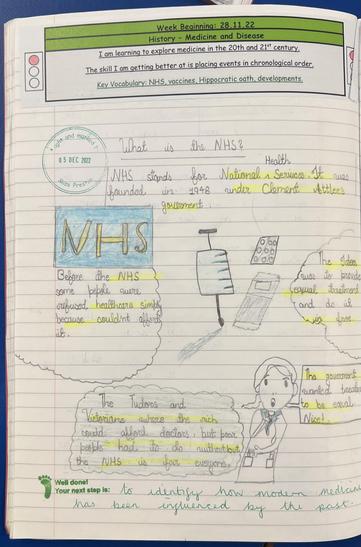 Week Beginning: 28.11.22
History – Medicine and Disease
I am learning to explore medicine in the 20th and 21st century.
The skill I am getting better at is placing events in chronological order.
Key Vocabulary: NHS, vaccines, Hippocratic oath, developments.
05 DEC 2022
Miss Preston
What is the NHS?
Health
NHS stands for National ^ Service. It was
founded in 1948 under Clement Attlee's
goverment.
NHS
Before the NHS
some people were
refused healthcare simply
because couldn't afford
it.
The
was to provide
equal treatment
and do it
for free
The goverment
wanted
to be equal.
Nice!
The Tudors and
Victorians where the rich
could afford doctors, but poor
people had to do without but
the NHS is for everyone.
Well done!
Your next step is: to identify how modern medicine
has been influenced by the past.